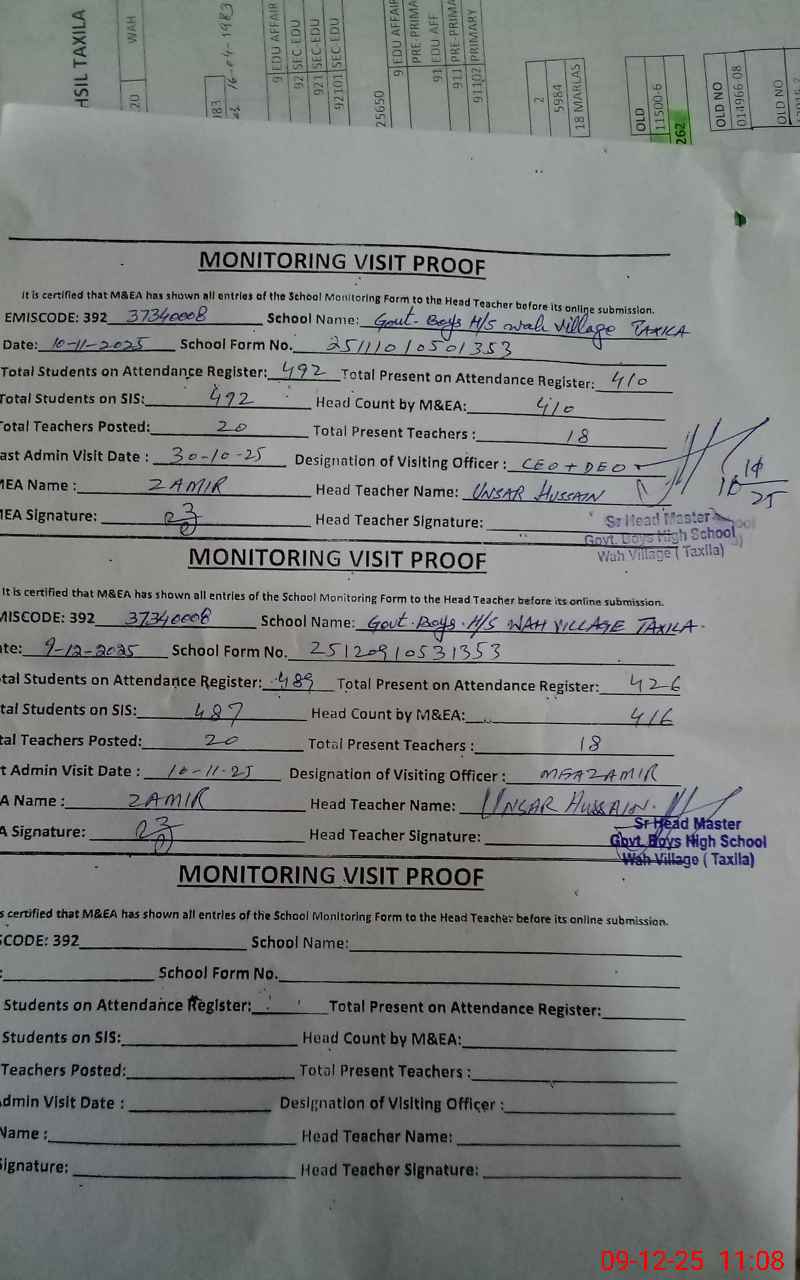 HSIL TAXILA
WAH
20
183
16-04-1983
9 EDU AFFAIR
92 SEC EDU
921 SEC EDU
92101 SEC EDU
25650
9 EDU AFFAIR
PRE PRIMA
91 EDU AFF
911 PRE-PRIMA
91102 PRIMARY
2
5984
18 MARLAS
OLD
11500-6
262
OLD NO
014966 08
OLD NO
MONITORING VISIT PROOF
It is certified that M&EA has shown all entries of the School Monitoring Form to the Head Teacher before its online submission.
EMISCODE: 392 37340008 School Name: Govt. Boys H/S Wah Village TAXILA
Date: 10-11-2025 School Form No. 25111010501353
Total Students on Attendance Register: 492 Total Present on Attendance Register: 410
Total Students on SIS: 492 Head Count by M&EA: 410
Total Teachers Posted: 20 Total Present Teachers : 18
ast Admin Visit Date : 30-10-25 Designation of Visiting Officer : CEO + DEO
MEA Name : ZAMIR Head Teacher Name: UNSAR HUSSAIN
10/11/25
MEA Signature: Head Teacher Signature:
Sr Head Master
Govt. Boys High School
Wah Village ( Taxila)
MONITORING VISIT PROOF
It is certified that M&EA has shown all entries of the School Monitoring Form to the Head Teacher before its online submission.
MISCODE: 392 37340008 School Name: Govt. Boys. H/S WAH VILLAGE TAXILA.
ate: 9-12-2025 School Form No. 25120910531353
tal Students on Attendance Register: 489 Total Present on Attendance Register: 426
tal Students on SIS: 487 Head Count by M&EA: 416
tal Teachers Posted: 20 Total Present Teachers : 18
t Admin Visit Date : 10-11-25 Designation of Visiting Officer : MEA ZAMIR
A Name : ZAMIR Head Teacher Name: UNSAR HUSSAIN.
A Signature: Head Teacher Signature:
Sr Head Master
Govt. Boys High School
Wah Village ( Taxila)
MONITORING VISIT PROOF
s certified that M&EA has shown all entries of the School Monitoring Form to the Head Teacher before its online submission.
SCODE: 392 School Name:
: School Form No.
Students on Attendance Register: Total Present on Attendance Register:
Students on SIS: Head Count by M&EA:
Teachers Posted: Total Present Teachers :
dmin Visit Date : Designation of Visiting Officer :
Name : Head Teacher Name:
ignature: Head Teacher Signature:
09-12-25 11:08